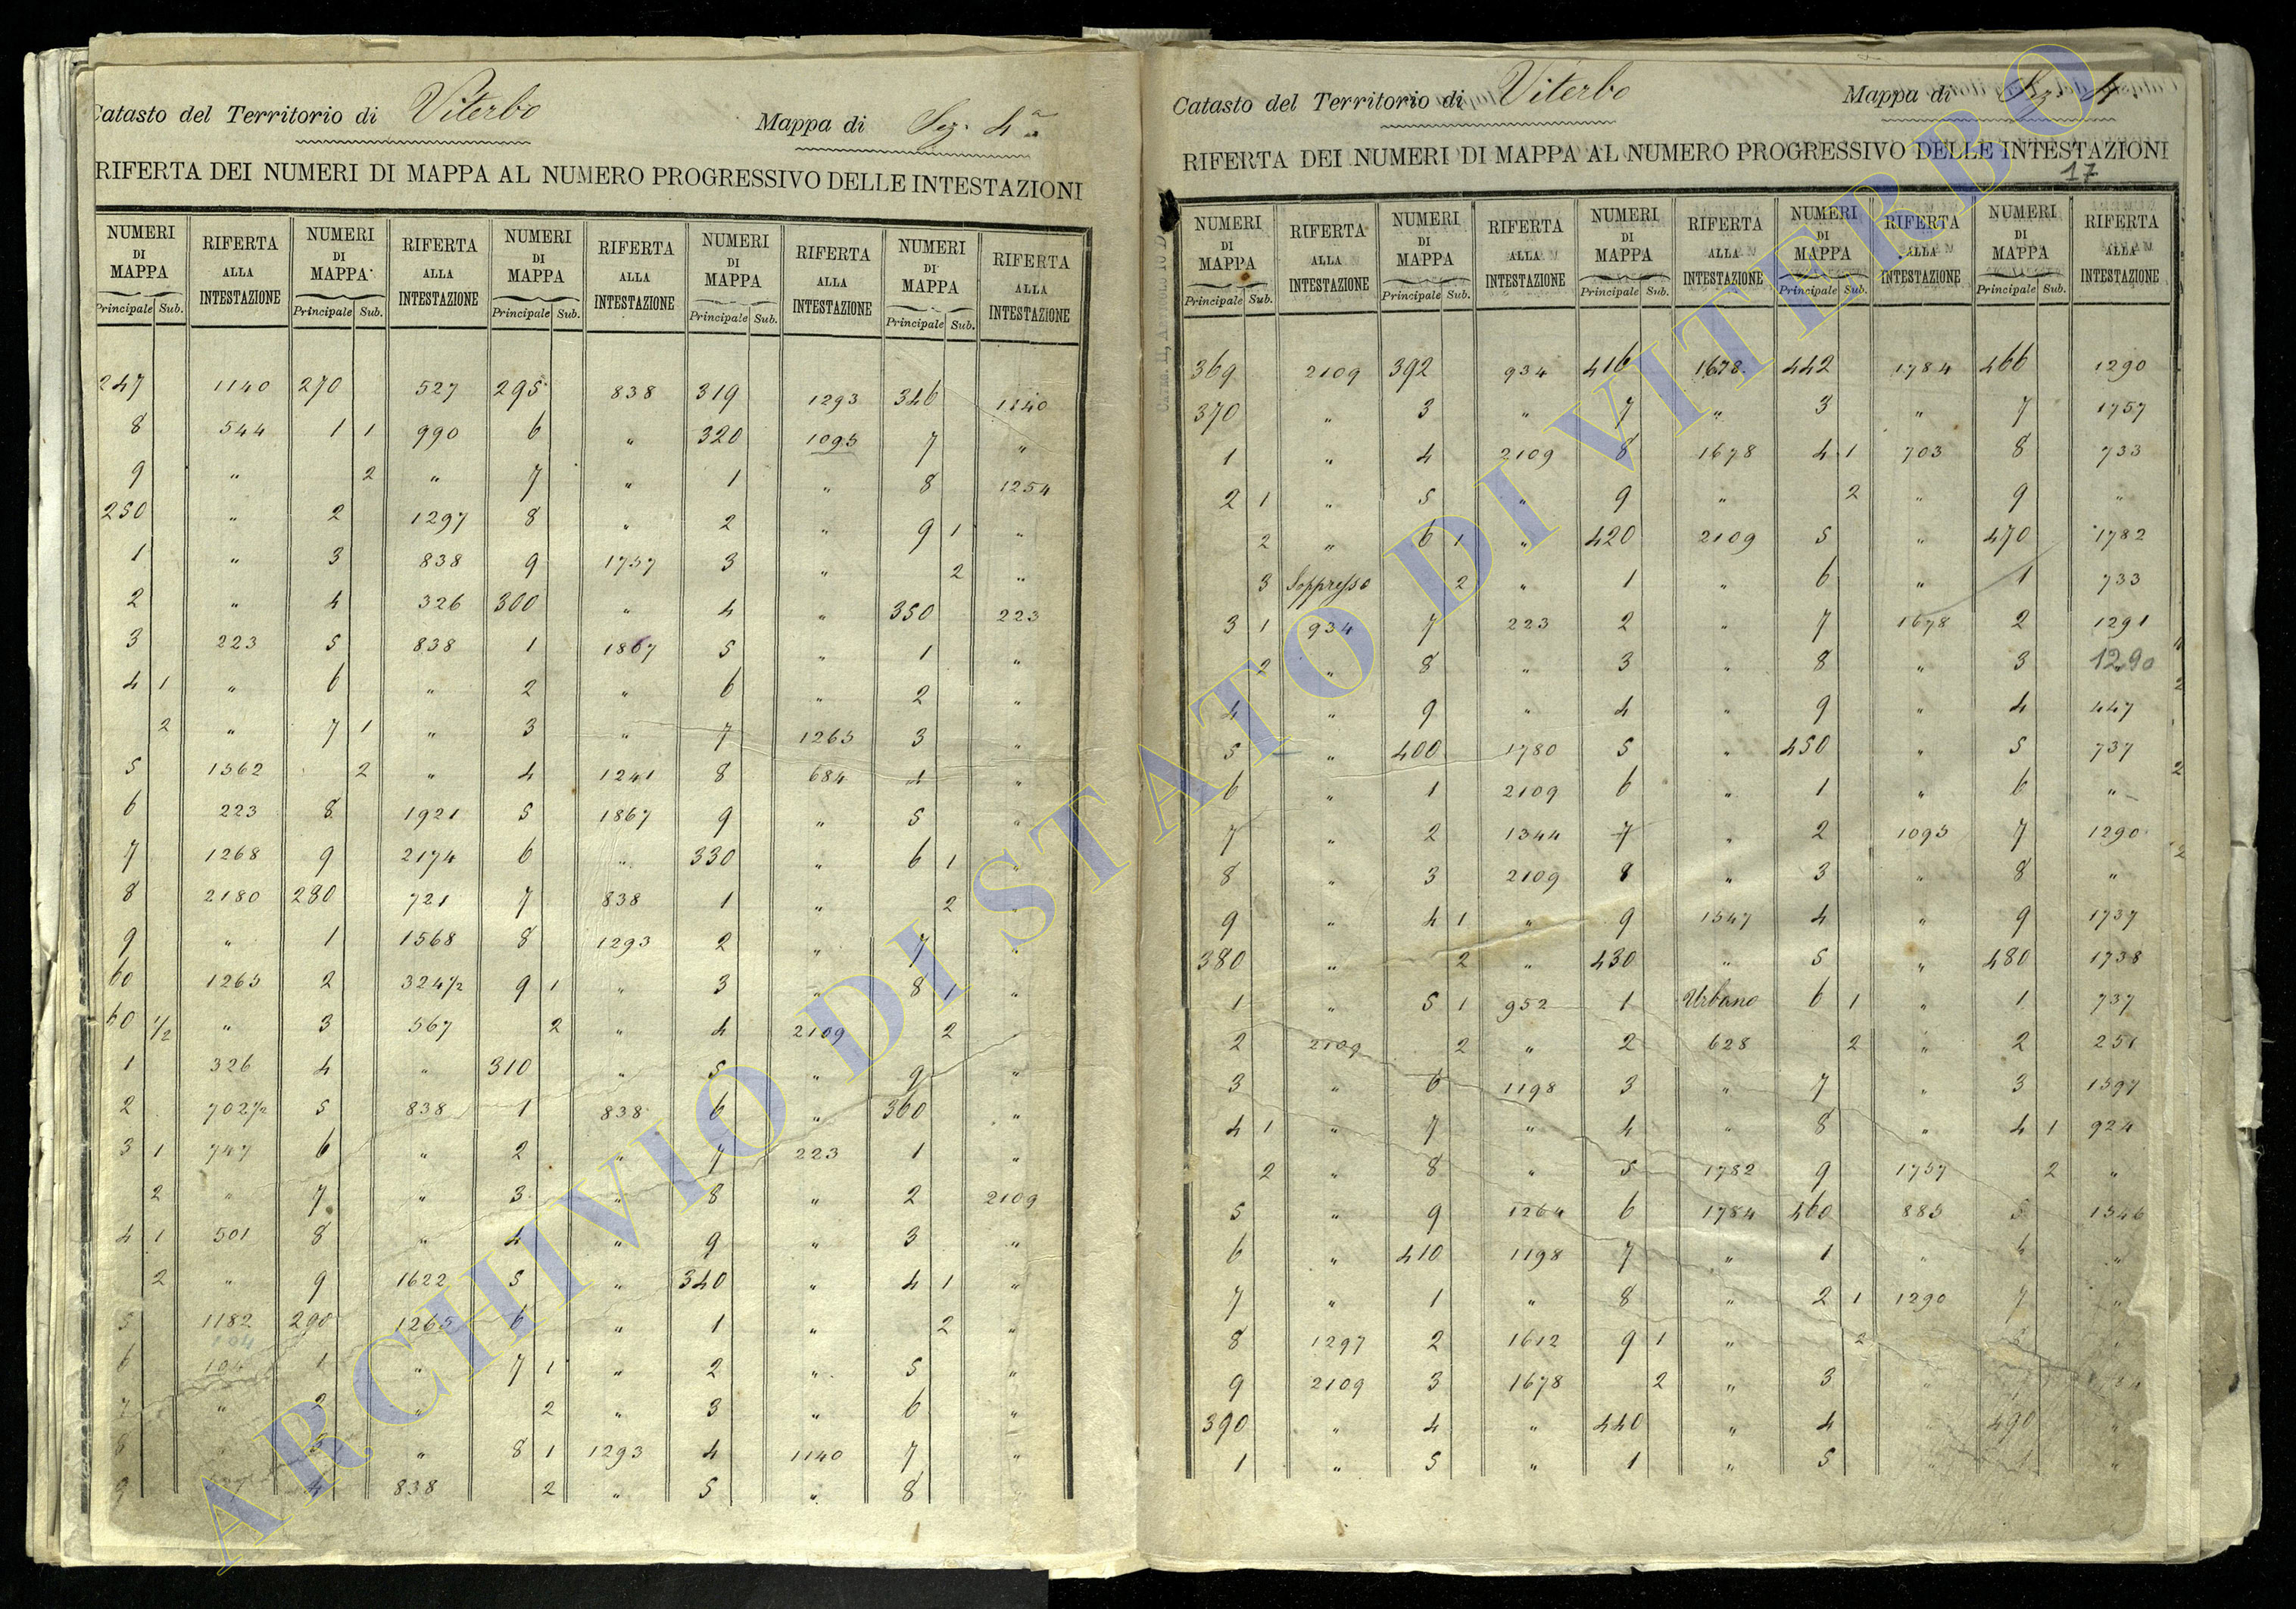 Catasto del Territorio di Viterbo Mappa di Sez. 4ª
RIFERTA DEI NUMERI DI MAPPA AL NUMERO PROGRESSIVO DELLE INTESTAZIONI
NUMERI DI MAPPA RIFERTA ALLA INTESTAZIONE NUMERI DI MAPPA RIFERTA ALLA INTESTAZIONE NUMERI DI MAPPA RIFERTA ALLA INTESTAZIONE NUMERI DI MAPPA RIFERTA ALLA INTESTAZIONE NUMERI DI MAPPA RIFERTA ALLA INTESTAZIONE
Principale Sub. Principale Sub. Principale Sub. Principale Sub. Principale Sub.
247 1140 270 527 295 838 319 1293 346 1140
8 544 1 1 990 6 " 320 1095 7 "
9 " 2 " 7 " 1 " 8 1254
250 " 2 1297 8 " 2 " 9 1 "
1 " 3 838 9 1757 3 " 2 "
2 " 4 326 300 " 4 " 350 223
3 223 5 838 1 1867 5 " 1 "
4 1 " 6 " 2 " 6 " 2 "
2 " 7 1 " 3 " 7 1265 3 "
5 1562 2 " 4 1241 8 684 4 "
6 223 8 1921 5 1867 9 " 5 "
7 1268 9 2174 6 " 330 " 6 1 "
8 2180 280 721 7 838 1 " 2 "
9 " 1 1568 8 1293 2 " 7 "
60 1265 2 324½ 9 1 " 3 " 8 1 "
60 ½ " 3 567 2 " 4 2109 2 "
1 326 4 " 310 " 5 " 9 "
2 702½ 5 838 1 838 6 " 360 "
3 1 747 6 " 2 " 7 223 1 "
2 " 7 " 3 " 8 " 2 2109
4 1 501 8 " 4 " 9 " 3 "
2 " 9 1622 5 " 340 " 4 1 "
5 1182 290 1265 6 " 1 " 2 "
104
6 104 1 " 7 1 " 2 " 5 "
7 " 2 " 2 " 3 " 6 "
8 " 3 " 8 1 1293 4 1140 7 "
9 4 838 2 " 5 " 8 "
Catasto del Territorio di Viterbo Mappa di Sez. 4.
RIFERTA DEI NUMERI DI MAPPA AL NUMERO PROGRESSIVO DELLE INTESTAZIONI
17
NUMERI DI MAPPA RIFERTA ALLA INTESTAZIONE NUMERI DI MAPPA RIFERTA ALLA INTESTAZIONE NUMERI DI MAPPA RIFERTA ALLA INTESTAZIONE NUMERI DI MAPPA RIFERTA ALLA INTESTAZIONE NUMERI DI MAPPA RIFERTA ALLA INTESTAZIONE
Principale Sub. Principale Sub. Principale Sub. Principale Sub. Principale Sub.
369 2109 392 934 416 1678 442 1784 466 1290
370 " 3 " 7 " 3 " 7 1757
1 " 4 2109 8 1678 4 1 703 8 733
2 1 " 5 " 9 " 2 " 9 "
2 " 6 1 " 420 2109 5 " 470 1782
3 Soppresso 2 " 1 " 6 " 1 733
3 1 934 7 223 2 " 7 1678 2 1291
2 " 8 " 3 " 8 " 3 1290
4 " 9 " 4 " 9 " 4 447
5 " 400 1780 5 " 450 " 5 737
6 " 1 2109 6 " 1 " 6 "
7 " 2 1344 7 " 2 1095 7 1290
8 " 3 2109 8 " 3 " 8 "
9 " 4 1 " 9 1547 4 " 9 1737
380 " 2 " 430 " 5 " 480 1738
1 " 5 1 952 1 Urbano 6 1 " 1 737
2 2109 2 " 2 628 2 " 2 251
3 " 6 1198 3 " 7 " 3 1597
4 1 " 7 " 4 " 8 " 4 1 924
2 " 8 " 5 1782 9 1757 2 "
5 " 9 1264 6 1784 460 885 5 1546
6 " 410 1198 7 " 1 " 6 "
7 " 1 " 8 " 2 1 1290 7 "
8 1297 2 1612 9 1 " 2 8 "
9 2109 3 1678 2 " 3 "
390 " 4 " 440 " 4 " 490 "
1 " 5 " 1 " 5 " 1 "
ARCHIVIO DI STATO DI VITERBO